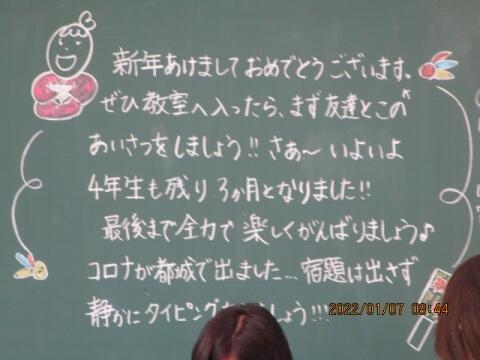 新年あけましておめでとうございます。
ぜひ教室へ入ったら、まず友達とこの
あいさつをしましょう!! さぁ〜いよいよ
4年生も残り3か月となりました!!
最後まで全力で楽しくがんばりましょう♪
コロナが都城で出ました…宿題は出さず
静かにタイピング しょう!!!
2022/01/07 08:44